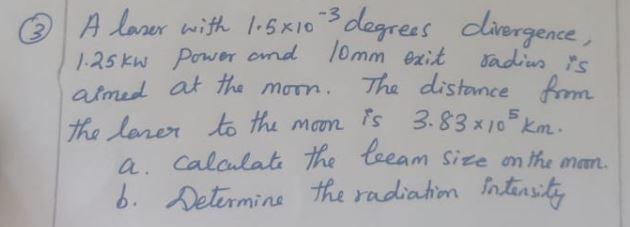 ③ A laser with 1.5×10⁻³ degrees divergence,
1.25 kW power and 10mm exit radius is
aimed at the moon. The distance from
the laser to the moon is 3.83×10⁵ km.
a. calculate the beam size on the moon.
b. Determine the radiation intensity